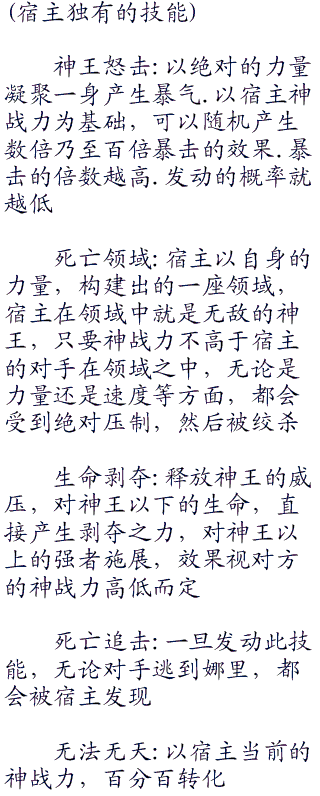 (宿主独有的技能)
神王怒击:以绝对的力量
凝聚一身产生暴气.以宿主神
战力为基础，可以随机产生
数倍乃至百倍暴击的效果.暴
击的倍数越高.发动的概率就
越低
死亡领域:宿主以自身的
力量，构建出的一座领域，
宿主在领域中就是无敌的神
王，只要神战力不高于宿主
的对手在领域之中，无论是
力量还是速度等方面，都会
受到绝对压制，然后被绞杀
生命剥夺:释放神王的威
压，对神王以下的生命，直
接产生剥夺之力，对神王以
上的强者施展，效果视对方
的神战力高低而定
死亡追击:一旦发动此技
能，无论对手逃到娜里，都
会被宿主发现
无法无天:以宿主当前的
神战力，百分百转化